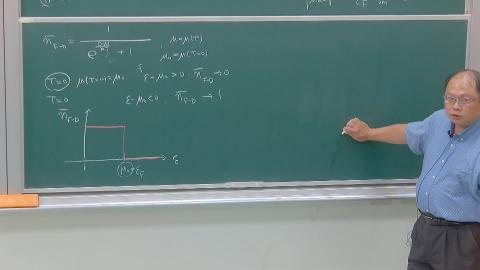 n̄_F-D = 1 / (e^((ε-μ)/kT) + 1) , μ = μ(T)
μ₀ = μ(T=0)
T=0 μ(T=0)=μ₀ if ε-μ₀ > 0 n̄_F-D → 0
T=0 ε-μ₀ < 0 , n̄_F-D → 1
n̄_F-D
1
μ₀ = ε_F ε